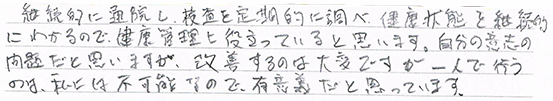 継続的に通院し、検査を定期的に調べ、健康状態を継続的
にわかるので、健康管理に役立っていると思います。自分の意志の
問題だと思いますが、改善するのは大変ですが一人で行う
のは、私には不可能なので、有意義だと思っています。